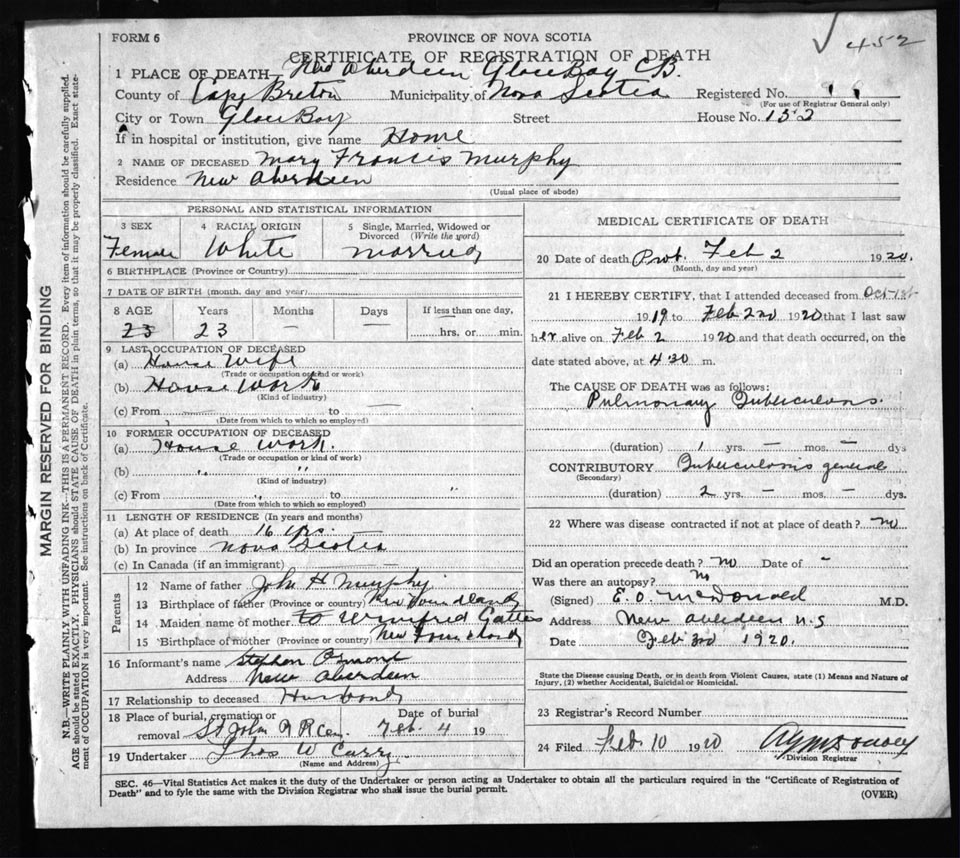 ✓ 452
FORM 6
PROVINCE OF NOVA SCOTIA
CERTIFICATE OF REGISTRATION OF DEATH
1 PLACE OF DEATH New Aberdeen Glace Bay C.B.
County of Cape Breton Municipality of Nova Scotia Registered No.
(For use of Registrar General only)
City or Town Glace Bay Street House No. 152
If in hospital or institution, give name Home
2 NAME OF DECEASED Mary Francis Murphy
Residence New Aberdeen
(Usual place of abode)
PERSONAL AND STATISTICAL INFORMATION
3 SEX Female
4 RACIAL ORIGIN White
5 Single, Married, Widowed or Divorced (Write the word) Married
6 BIRTHPLACE (Province or Country)
7 DATE OF BIRTH (month, day and year)
8 AGE Years Months Days If less than one day,
23 23 — — hrs. or min.
9 LAST OCCUPATION OF DECEASED
(a) House Wife
(Trade or occupation or kind or work)
(b) House Work
(Kind of industry)
(c) From to
(Date from which to which so employed)
10 FORMER OCCUPATION OF DECEASED
(a) House Work.
(Trade or occupation or kind of work)
(b) " "
(Kind of industry)
(c) From " to "
(Date from which to which so employed)
11 LENGTH OF RESIDENCE (In years and months)
(a) At place of death 16 yrs.
(b) In province Nova Scotia
(c) In Canada (if an immigrant)
Parents
12 Name of father John H Murphy
13 Birthplace of father (Province or country) New Foundland
14 Maiden name of mother Winnifred
15 Birthplace of mother (Province or country) New Foundland
16 Informant's name Stephen Osmond
Address New Aberdeen
17 Relationship to deceased Husband
18 Place of burial, cremation or removal St John R R Cem. Date of burial Feb. 4 19
19 Undertaker Thos W Curry
(Name and Address)
MEDICAL CERTIFICATE OF DEATH
20 Date of death Prob. Feb 2 1920.
(Month, day and year)
21 I HEREBY CERTIFY, that I attended deceased from Oct 1st
1919 to Feb 2nd 1920 that I last saw
her alive on Feb 2 1920 and that death occurred, on the
date stated above, at 4 30 m.
The CAUSE OF DEATH was as follows:
Pulmonary Tuberculosis.
(duration) 1 yrs. — mos. — dys
CONTRIBUTORY Tuberculosis general
(Secondary)
(duration) 2 yrs. — mos. — dys.
22 Where was disease contracted if not at place of death? no
Did an operation precede death? no Date of -
Was there an autopsy? no
(Signed) E. O. McDonald M.D.
Address New Aberdeen N.S
Date Feb 2nd 1920.
State the Disease causing Death, or in death from Violent Causes, state (1) Means and Nature of
Injury, (2) whether Accidental, Suicidal or Homicidal.
23 Registrar's Record Number
24 Filed Feb. 10 1920
Division Registrar
SEC. 46—Vital Statistics Act makes it the duty of the Undertaker or person acting as Undertaker to obtain all the particulars required in the "Certificate of Registration of
Death" and to fyle the same with the Division Registrar who shall issue the burial permit.
(OVER)
MARGIN RESERVED FOR BINDING
N.B.—WRITE PLAINLY WITH UNFADING INK—THIS IS A PERMANENT RECORD. Every item of information should be carefully supplied.
AGE should be stated EXACTLY. PHYSICIANS should STATE CAUSE OF DEATH in plain terms, so that it may be properly classified. Exact state-
ment of OCCUPATION is very important. See instructions on back of Certificate.